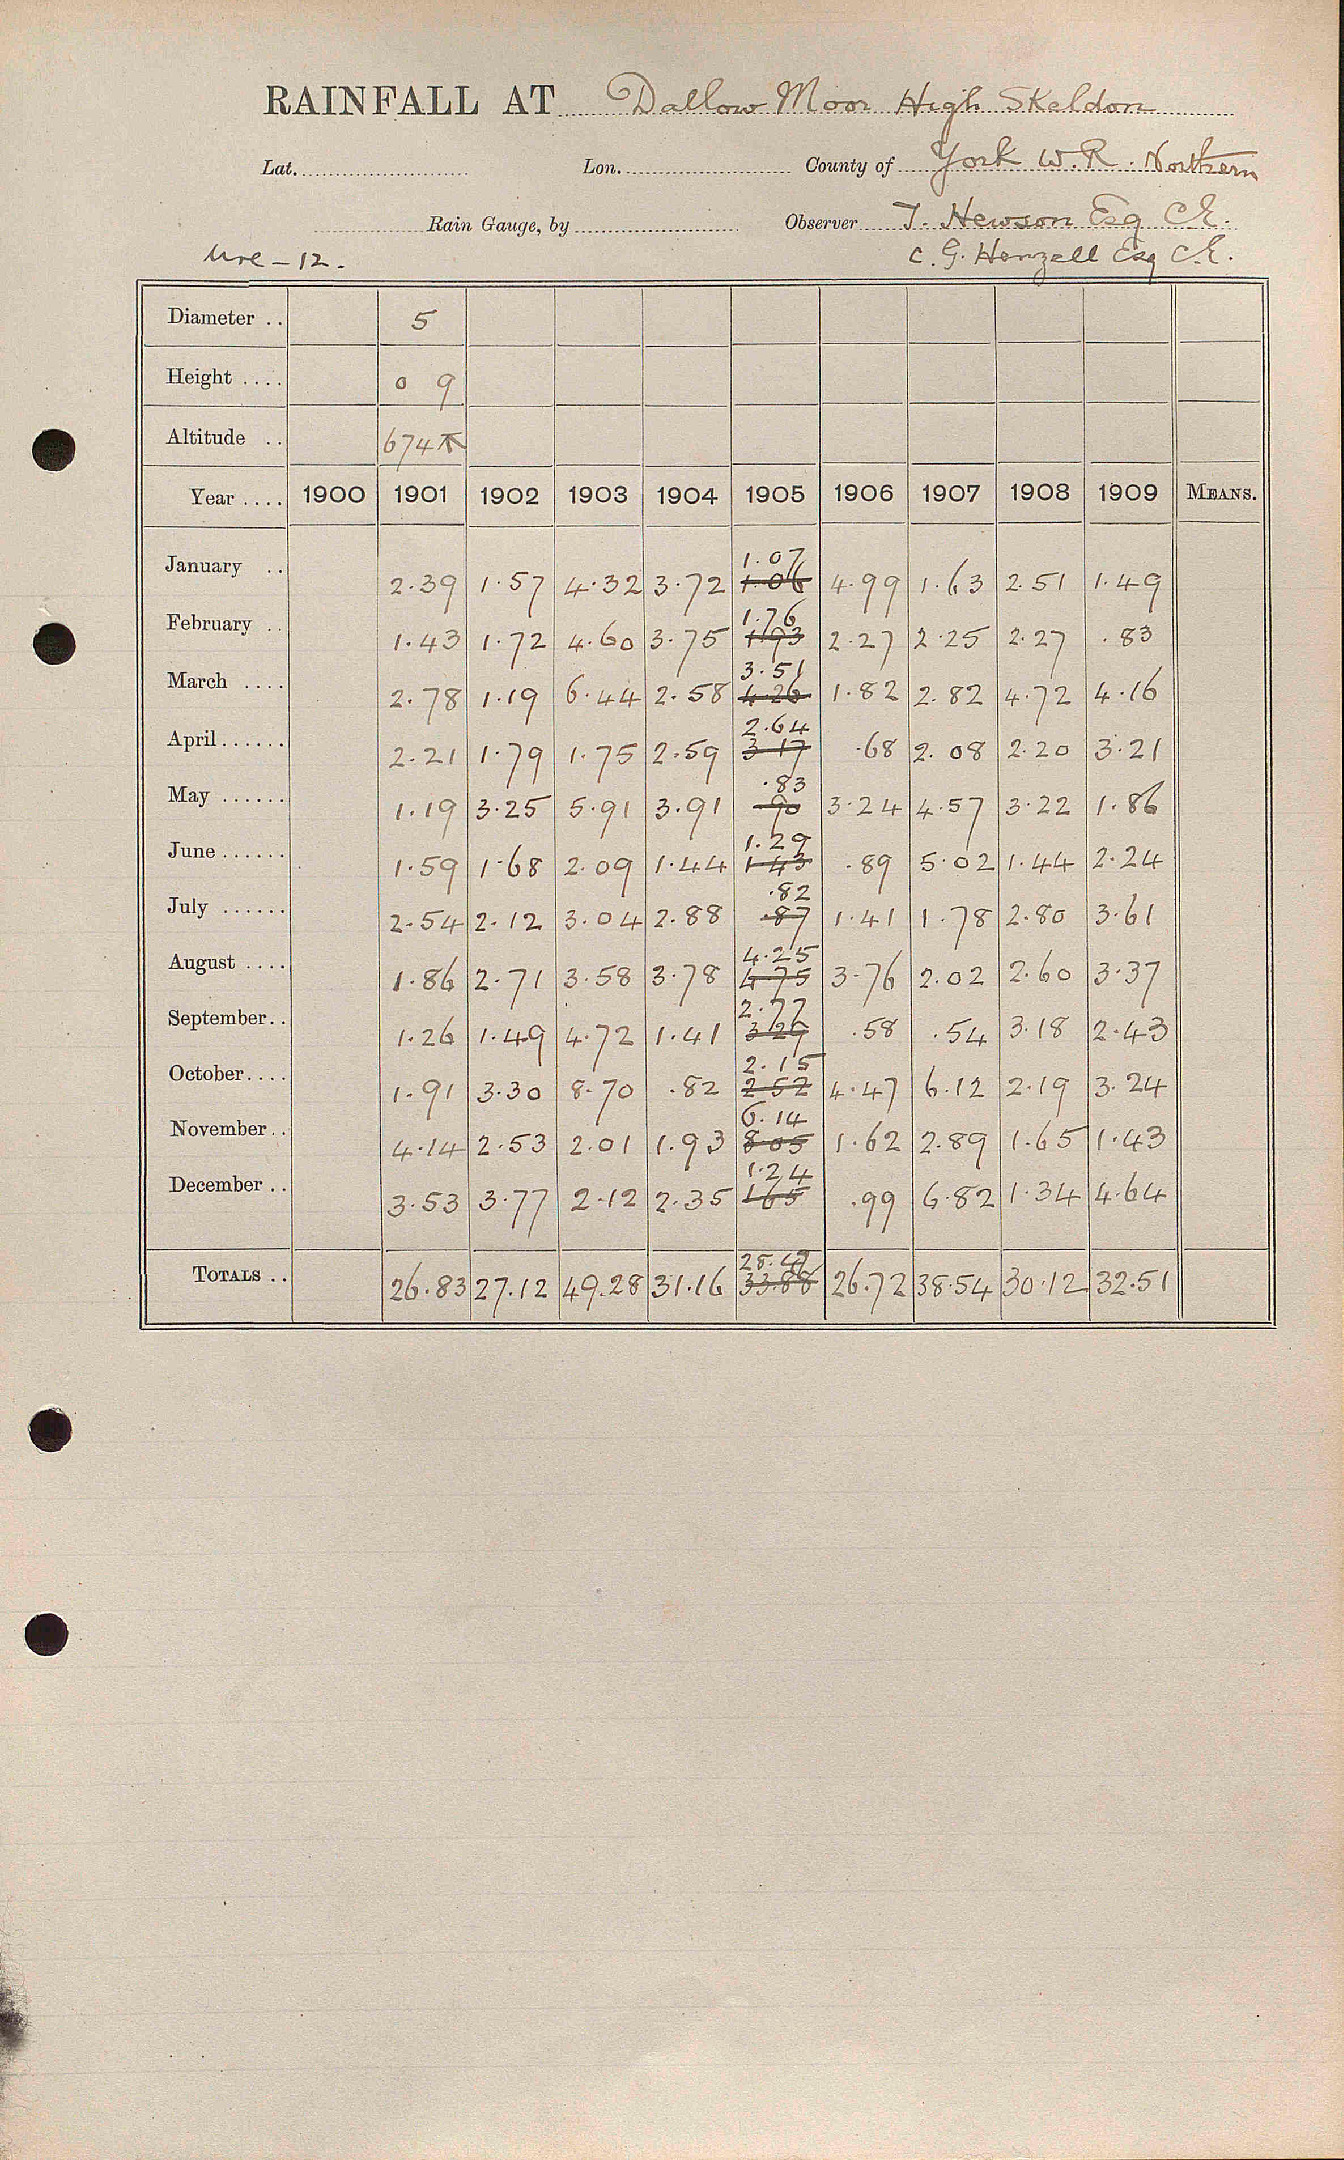 RAINFALL AT Dallow Moor High Skeldon
Lat. Lon. County of York W.R. Northern
Rain Gauge, by Observer T. Hewson Esq C.E.
Ure - 12. C. G. Henzell Esq C.E.
Diameter .. 5
Height .... 0 9
Altitude .. 674
Year .... 1900 1901 1902 1903 1904 1905 1906 1907 1908 1909 MEANS.
1.07
January .. 2.39 1.57 4.32 3.72 1.06 4.99 1.63 2.51 1.49
1.76
February .. 1.43 1.72 4.60 3.75 1.93 2.27 2.25 2.27 .83
3.51
March .... 2.78 1.19 6.44 2.58 4.26 1.82 2.82 4.72 4.16
2.64
April ...... 2.21 1.79 1.75 2.59 3.17 .68 2.08 2.20 3.21
.83
May ...... 1.19 3.25 5.91 3.91 .90 3.24 4.57 3.22 1.86
1.29
June ...... 1.59 1.68 2.09 1.44 1.43 .89 5.02 1.44 2.24
.82
July ...... 2.54 2.12 3.04 2.88 .87 1.41 1.78 2.80 3.61
4.25
August .... 1.86 2.71 3.58 3.78 4.75 3.76 2.02 2.60 3.37
2.77
September .. 1.26 1.49 4.72 1.41 3.29 .58 .54 3.18 2.43
2.15
October .... 1.91 3.30 8.70 .82 2.52 4.47 6.12 2.19 3.24
6.14
November .. 4.14 2.53 2.01 1.93 8.05 1.62 2.89 1.65 1.43
1.24
December .. 3.53 3.77 2.12 2.35 1.65 .99 6.82 1.34 4.64
28.47
TOTALS .. 26.83 27.12 49.28 31.16 33.88 26.72 38.54 30.12 32.51